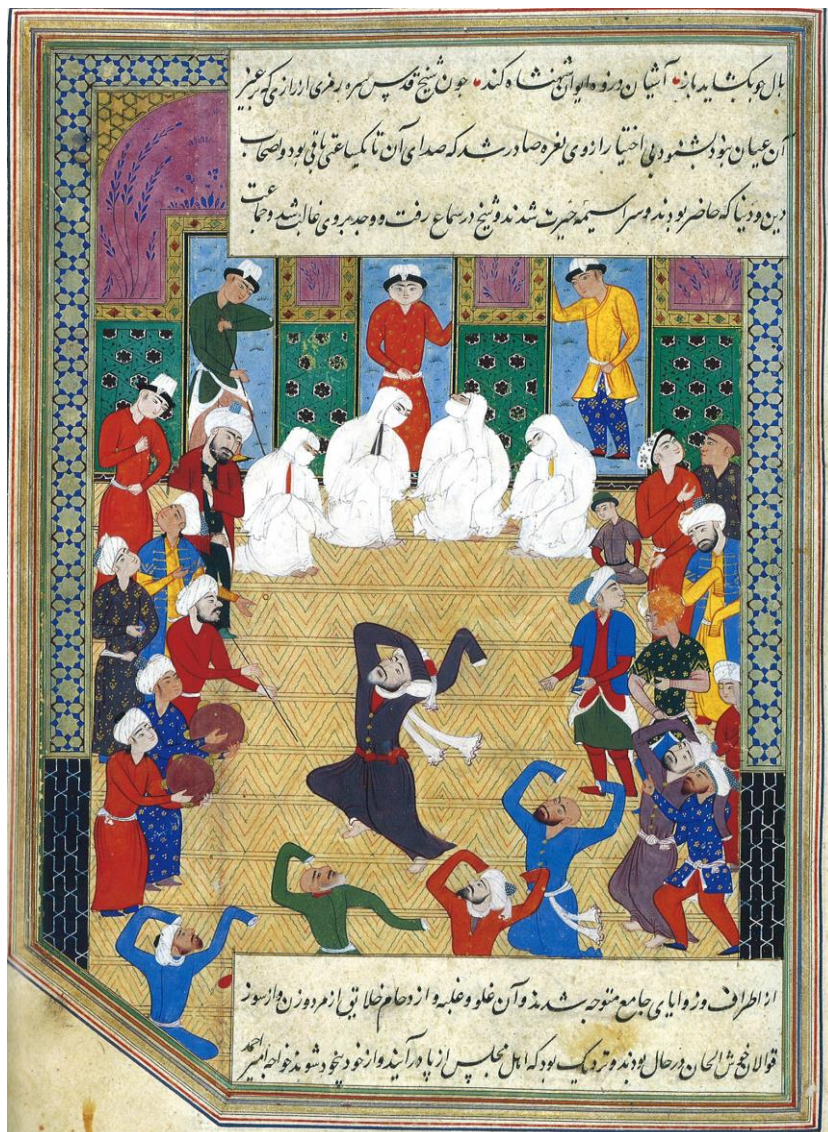 بال چو بکشاید باز آشیان در زه ایوان شهنشاه کند چون شیخ قدس سره رمزی از رازی که عبیر
آن عیان بنود بشنود بی اختیار از وی نعره صادر شد که صدای آن تا یکساعتی باقی بود و اصحاب
دین و دنیا که حاضر بودند و سراسیمه حیرت شدند و شیخ در سماع رفت و وجد بر وی غالب شد و جماعت
از اطراف و زوایای جامع متوجه شدند و آن غلو و غلبه و ازدحام خلایق از مرد و زن و از سوز
قوالان خوش الحان در حال بودند و نزدیک بود که اهل مجلس از پا درآیند و از خود بیخود شوند خواجه امیر احمد